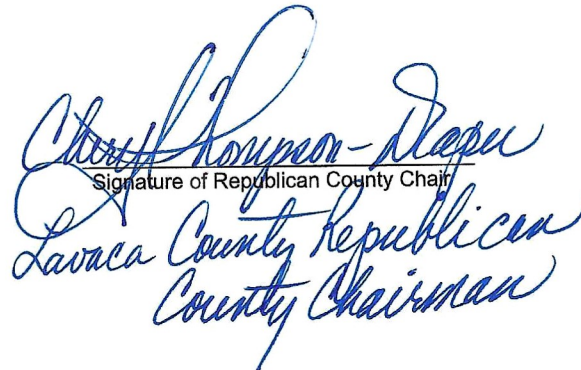 Cheryl Thompson-Draper
Signature of Republican County Chair
Lavaca County Republican
County Chairman